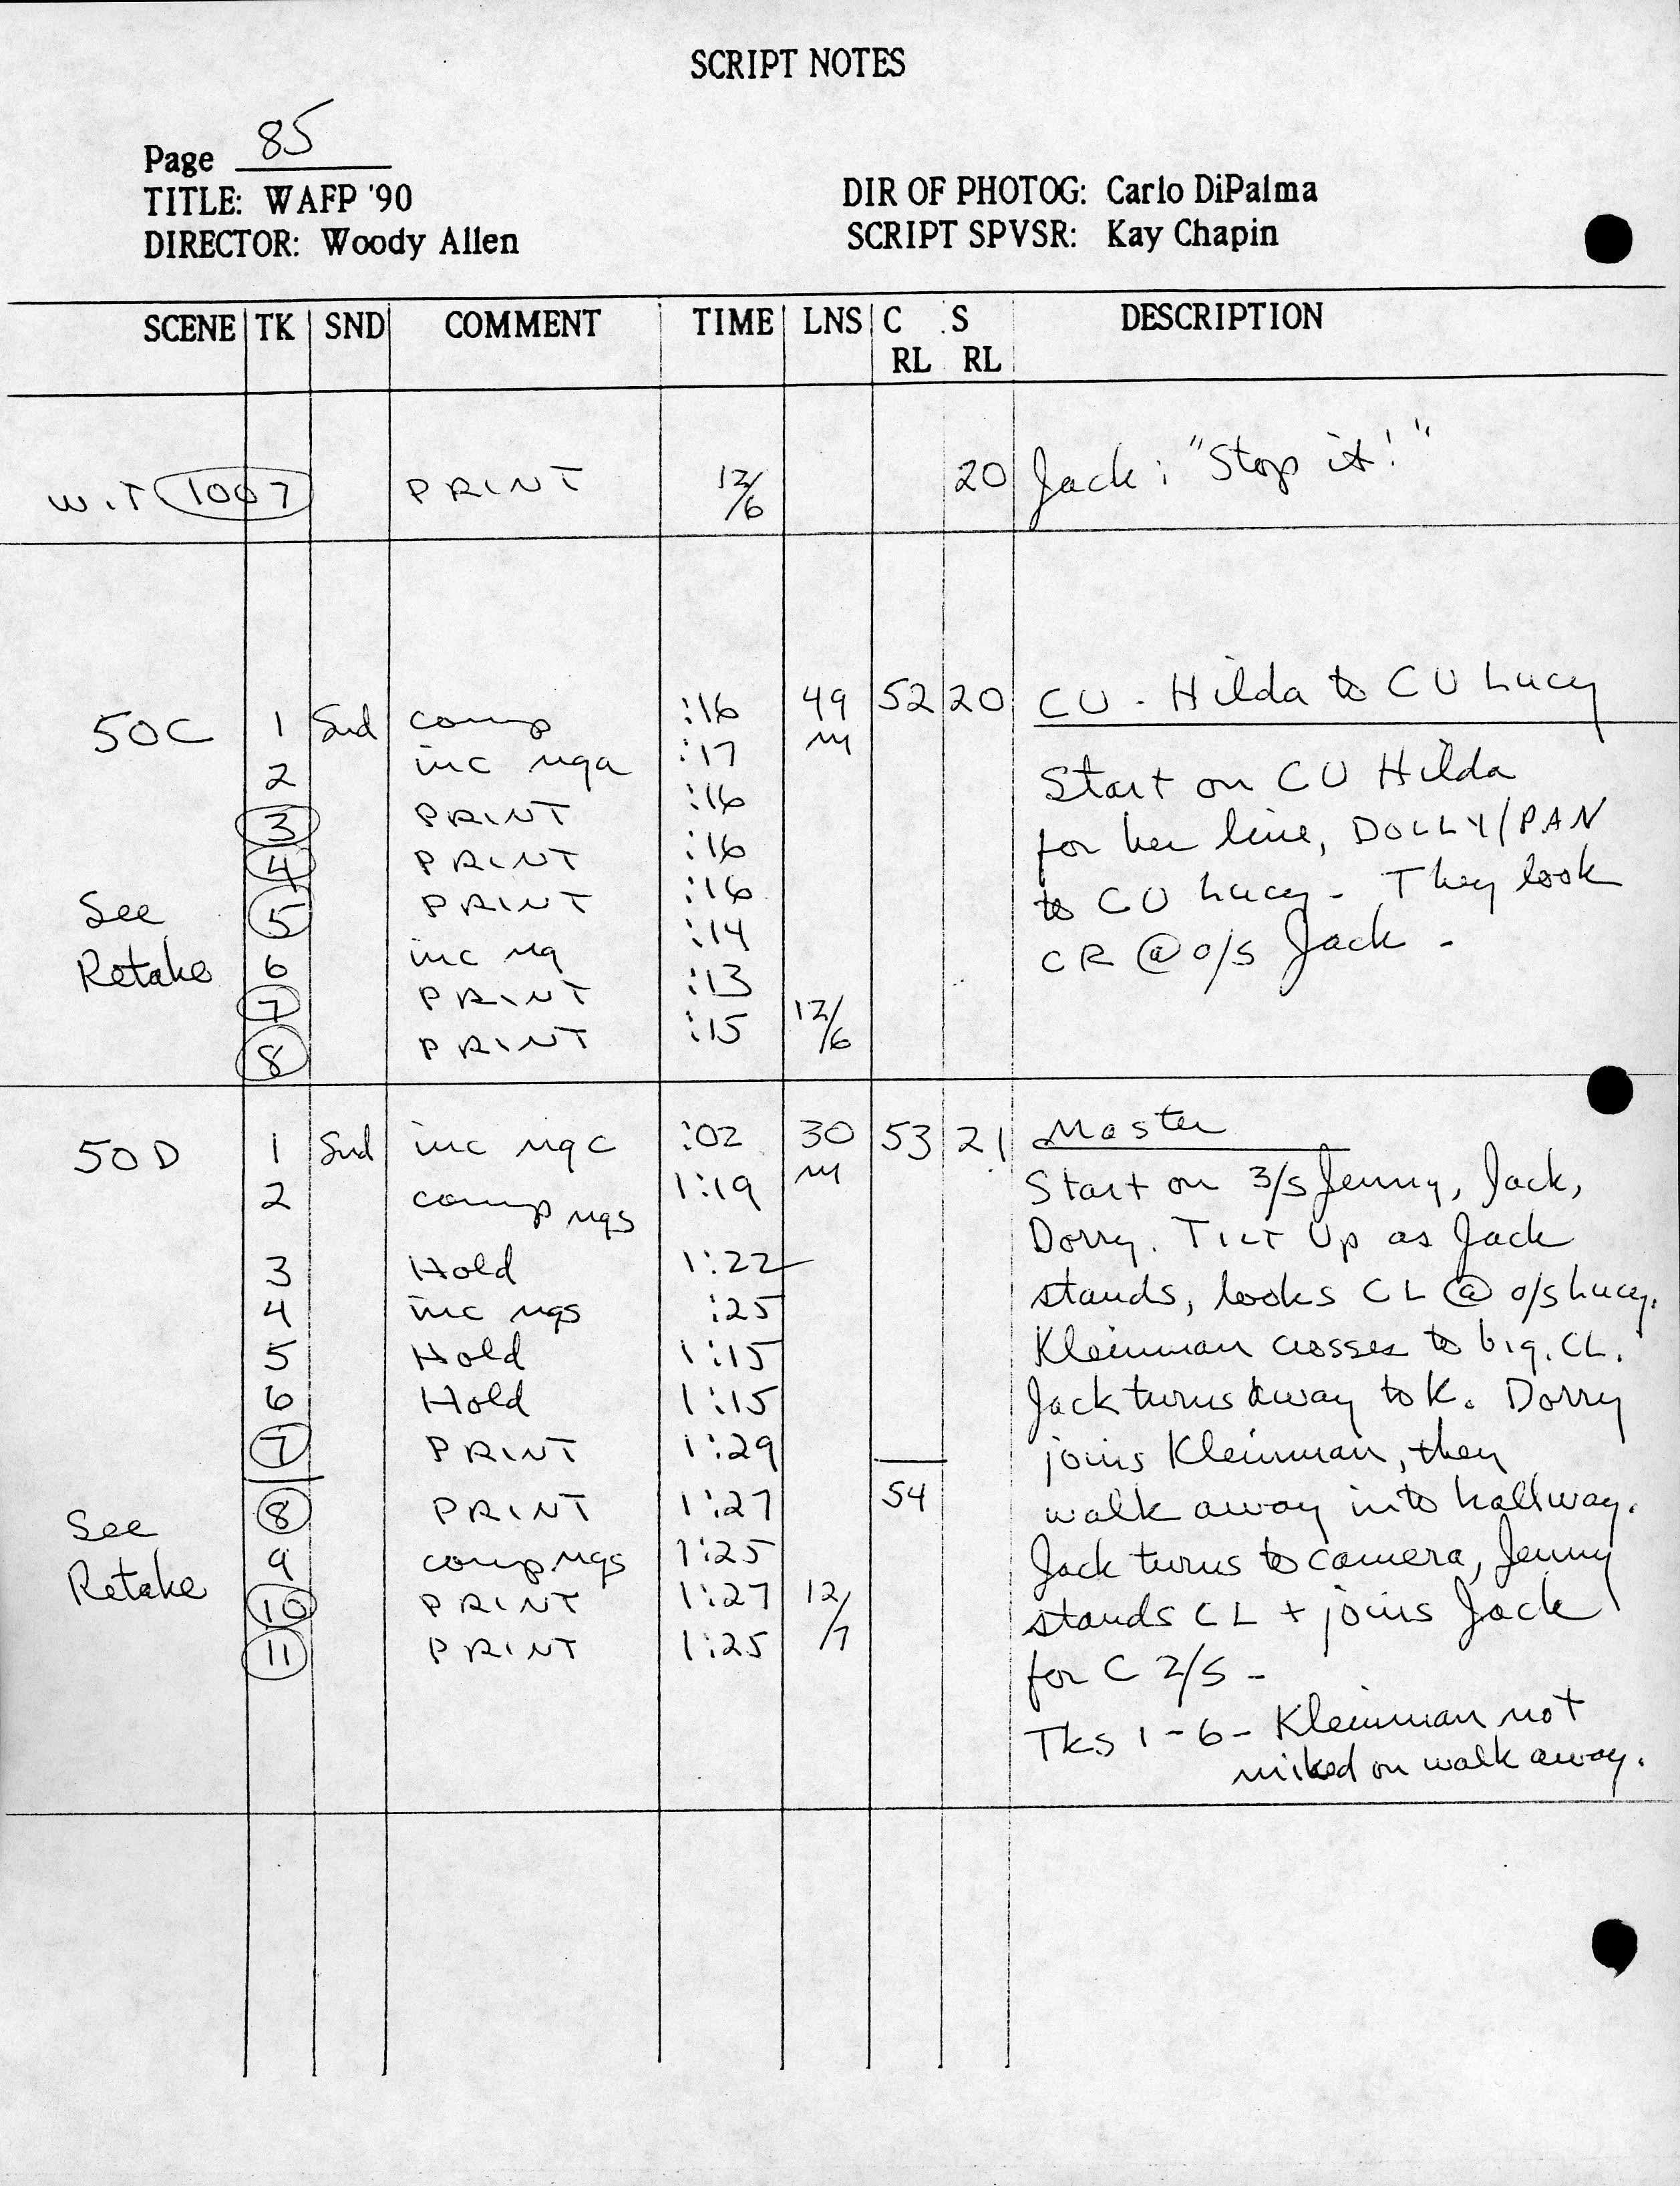 SCRIPT NOTES
Page 85
TITLE: WAFP '90
DIRECTOR: Woody Allen
DIR OF PHOTOG: Carlo DiPalma
SCRIPT SPVSR: Kay Chapin
SCENE TK SND COMMENT TIME LNS C RL S RL DESCRIPTION
W.T 1007 PRINT 12/6 20 Jack: "Stop it!"
50C 1 Snd comp :16 49 M 52 20 CU - Hilda to CU Lucy
2 inc nga :17
3 PRINT :16
4 PRINT :16
5 PRINT :16
6 inc ng :14
7 PRINT :13
8 PRINT :15 12/6
See
Retake
Start on CU Hilda
for her line, DOLLY/PAN
to CU Lucy - They look
CR @ o/s Jack -
50D 1 Snd inc ngc :02 30 M 53 21 Master
2 comp ngs 1:19
3 Hold 1:22
4 inc ngs :25
5 Hold 1:15
6 Hold 1:15
7 PRINT 1:29
8 PRINT 1:27 54
9 comp ngs 1:25
10 PRINT 1:27 12/7
11 PRINT 1:25
See
Retake
Start on 3/s Jenny, Jack,
Dorry. TILT Up as Jack
stands, looks CL @ o/s Lucy.
Kleinman crosses to big. CL.
Jack turns away to K. Dorry
joins Kleinman, they
walk away into hallway.
Jack turns to camera, Jenny
stands CL + joins Jack
for C 2/S -
Tks 1-6 - Kleinman not
miked on walk away.